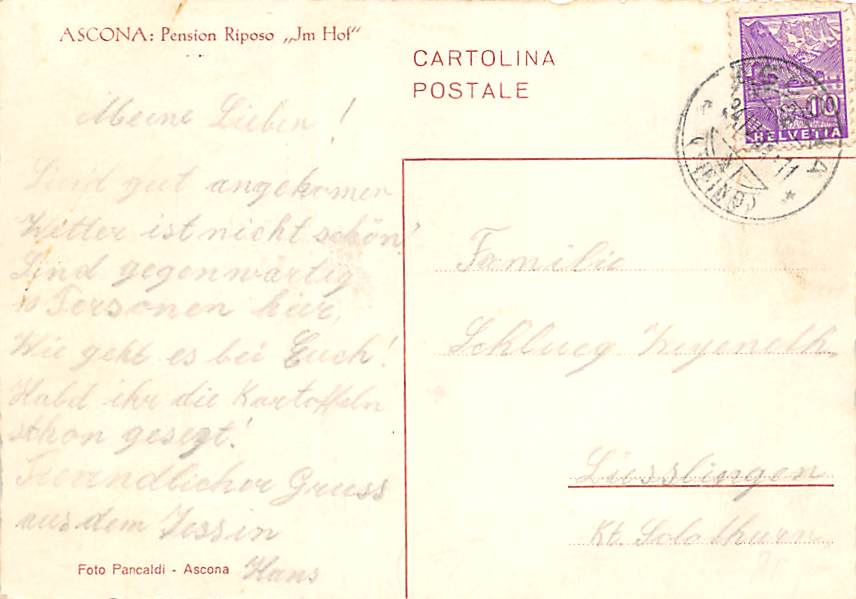 ASCONA: Pension Riposo „Jm Hof“
CARTOLINA
POSTALE
HELVETIA
10
Meine Lieben!
Sind gut angekomen
Wetter ist nicht schön!
Sind gegenwärtig
Personen hier,
Wie geht es bei Euch!
Habd ihr die Kartoffeln
schon gesezt!
Freundlicher Gruss
aus dem Tessin
Hans
Familie
Schlueg
Kt. Solothurn
Foto Pancaldi - Ascona